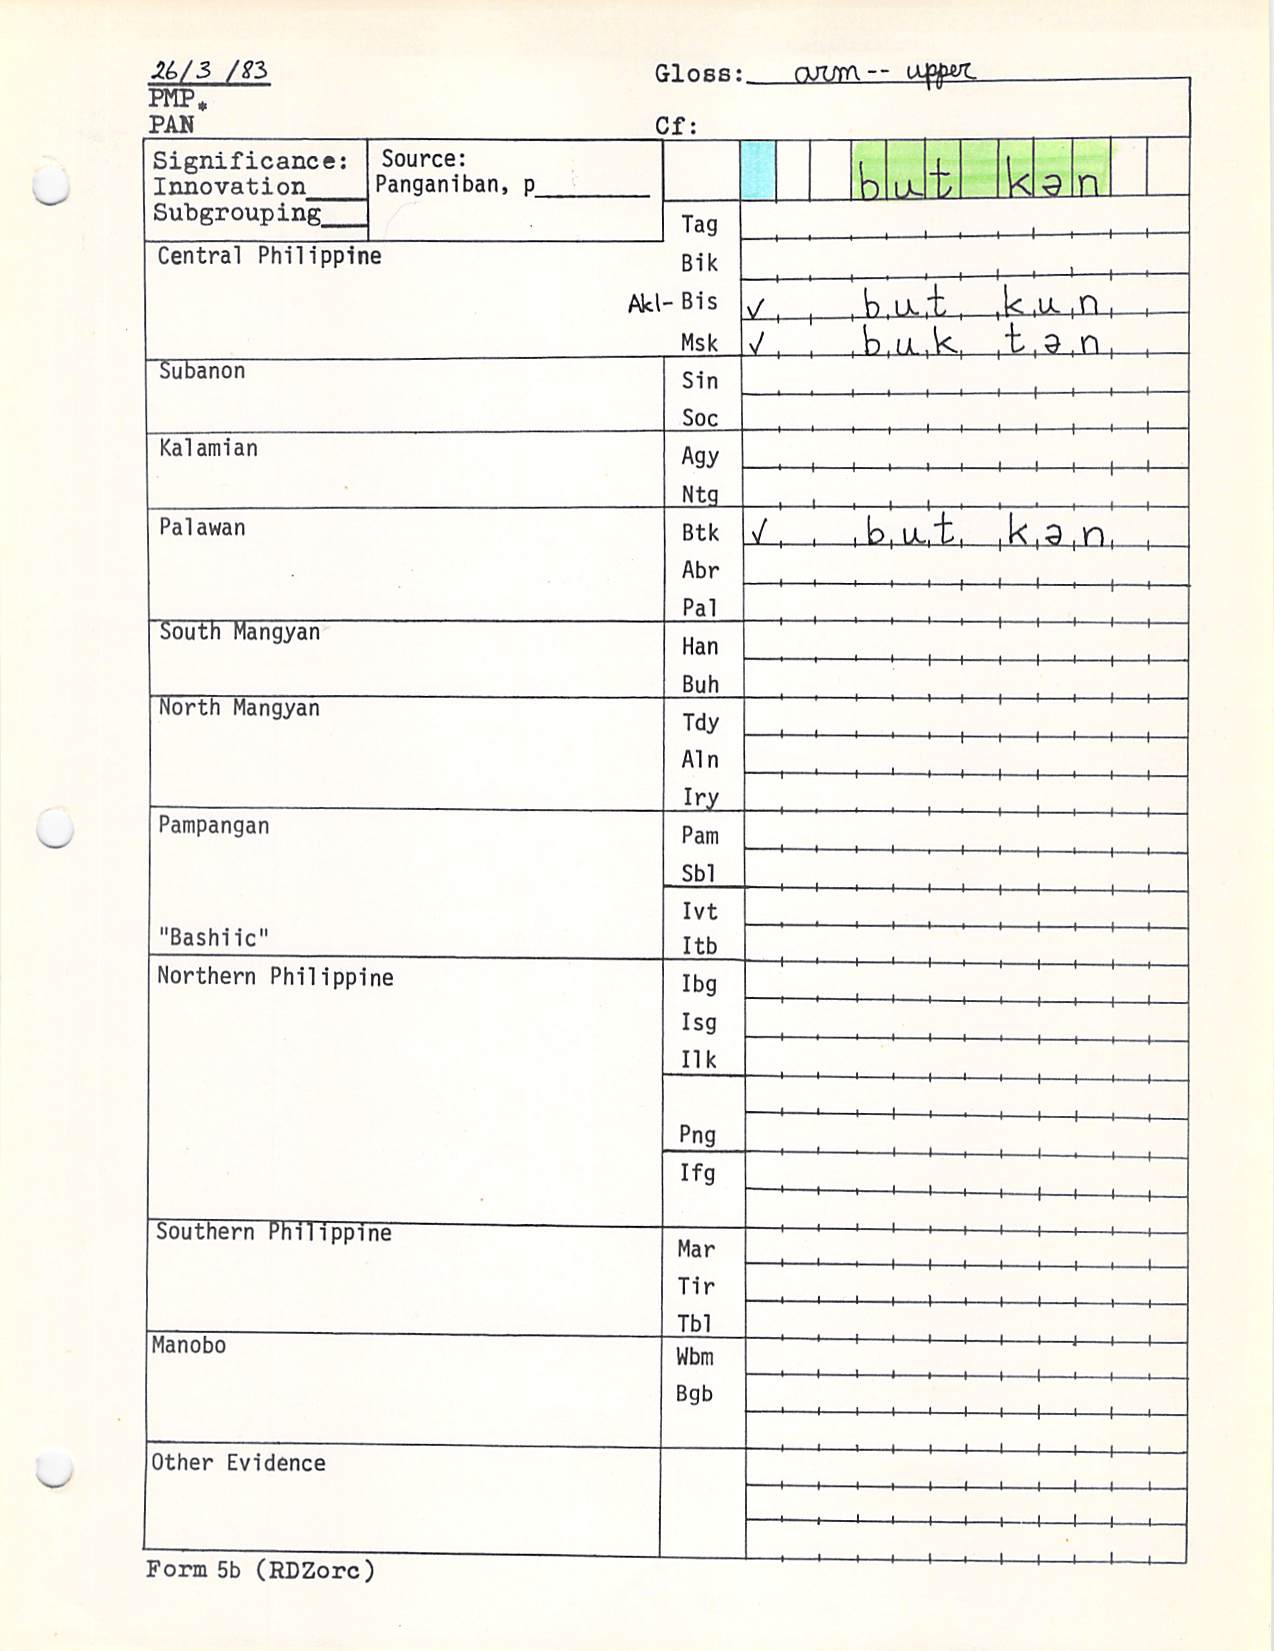 26/3 /83
Gloss: arm -- upper
PMP *
PAN
Cf:
Significance:
Innovation____
Subgrouping____
Source:
Panganiban, p________
but kən
Tag
Central Philippine
Bik
Akl- Bis ✓ but kun
Msk ✓ buk tən
Subanon
Sin
Soc
Kalamian
Agy
Ntg
Palawan
Btk ✓ but kən
Abr
Pal
South Mangyan
Han
Buh
North Mangyan
Tdy
Aln
Iry
Pampangan
Pam
Sbl
Ivt
"Bashiic"
Itb
Northern Philippine
Ibg
Isg
Ilk
Png
Ifg
Southern Philippine
Mar
Tir
Tbl
Manobo
Wbm
Bgb
Other Evidence
Form 5b (RDZorc)